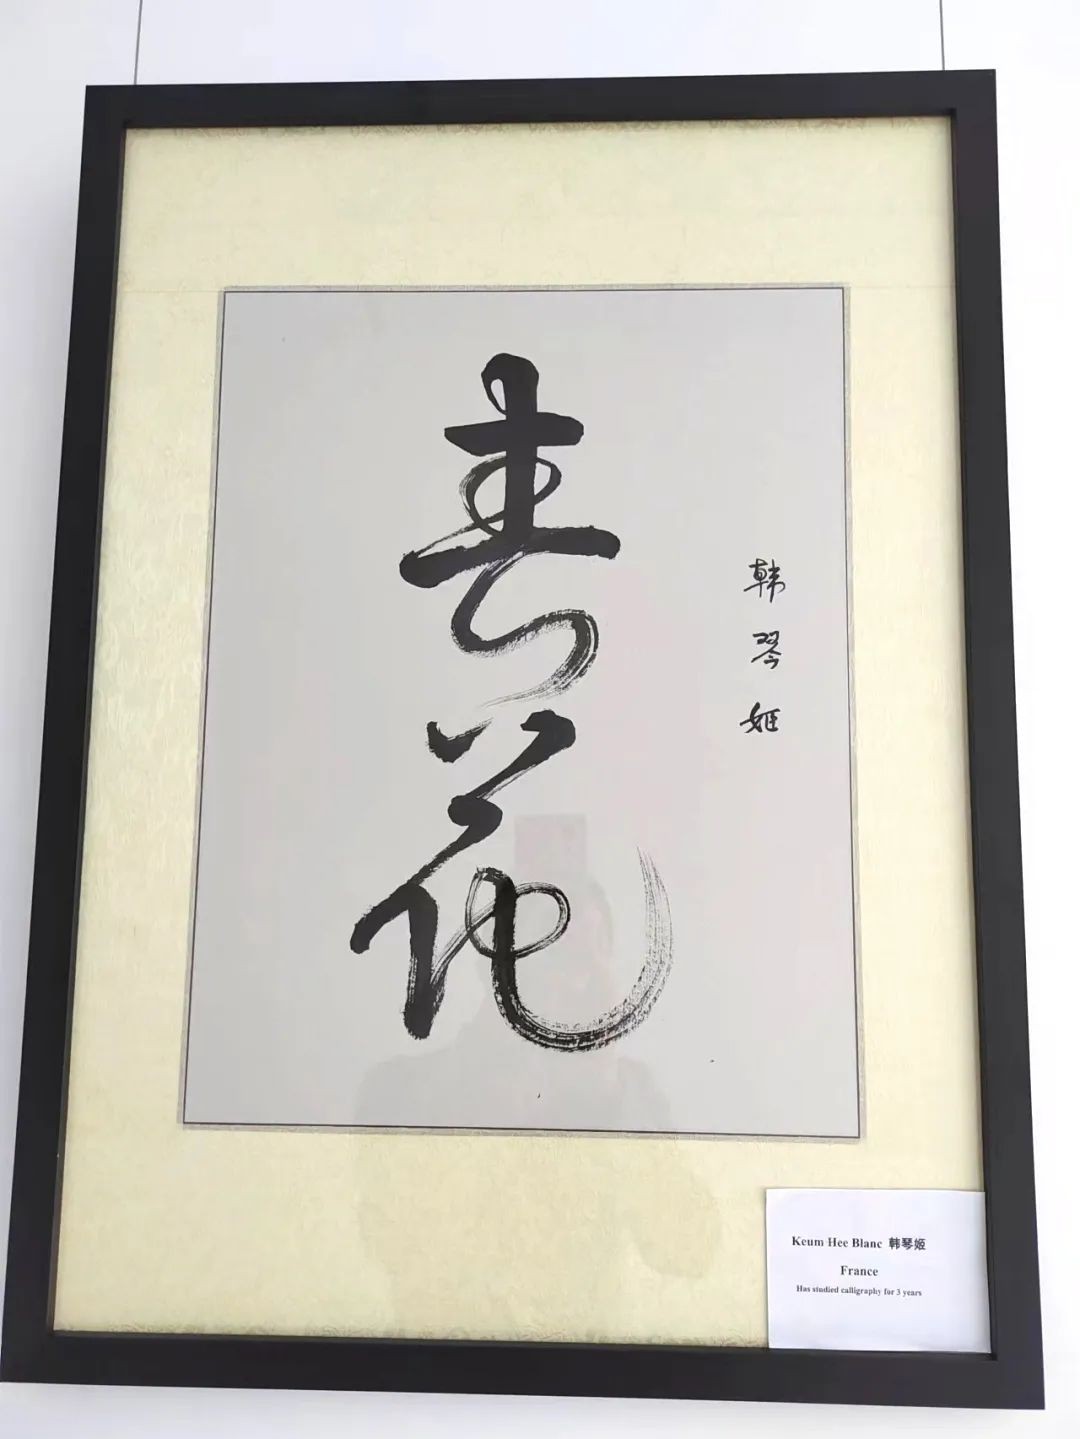 春花
韩
琴
姬
Keum Hee Blanc 韩琴姬
France
Has studied calligraphy for 3 years